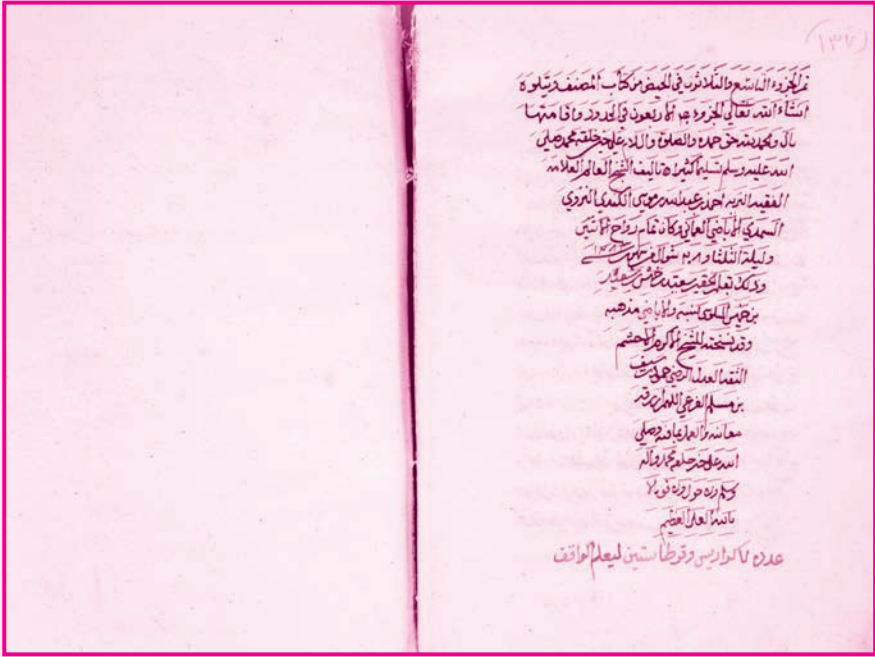 (١٣٧)
تم الجزوء التاسع والثلاثون في الحيض من كتاب المصنف ويتلوه
انشاء الله تعالي الجزوء الاربعون في الحدود واقامتها
والحمد لله حق حمده والصلوة والسلام علي خير خلقه محمد صلي
الله عليه وسلم تسليما كثيرا تاليف الشيخ العالم العلامه
الفقيه النزيه احمد بن عبدالله بن موسي الكندي النزوي
السمدي الاباضي العماني وكان تمام رواح الاثنين
وليلة الثلثا و ٢٨ شوال من شهور سنة
وذلك بقلم الحقير سعيد بن خميس
بن خميس نسبه والاباضي مذهبه
وقد نسخته للشيخ الاكرم الاحشم
الثقه العدل الرضي بن سيف
بن مسلم الفرعي اللهم ارزقه
معانيه والعمل بما فيه وصلي
الله علي خير خلقه محمد واله
وسلم ولا حول ولا قوة الا
بالله العلي العظيم
عدد كواريس وقرطاستين ليعلم الواقف